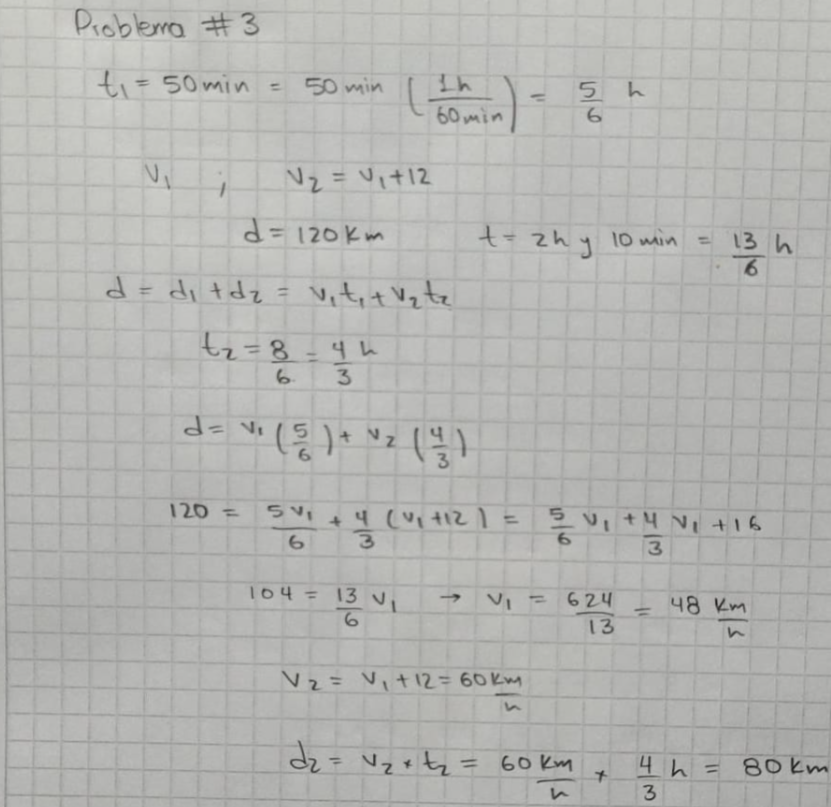 Problema #3
t₁ = 50min = 50min (1h/60min) = 5/6 h
v₁ ; v₂ = v₁+12
d = 120Km t = 2h y 10min = 13/6 h
d = d₁ + d₂ = v₁t₁ + v₂t₂
t₂ = 8/6 = 4/3 h
d = v₁ (5/6) + v₂ (4/3)
120 = 5v₁/6 + 4/3 (v₁+12) = 5/6 v₁ + 4/3 v₁ + 16
104 = 13/6 v₁ → v₁ = 624/13 = 48 Km/h
v₂ = v₁+12 = 60 Km/h
d₂ = v₂ * t₂ = 60 Km/h * 4/3 h = 80 Km